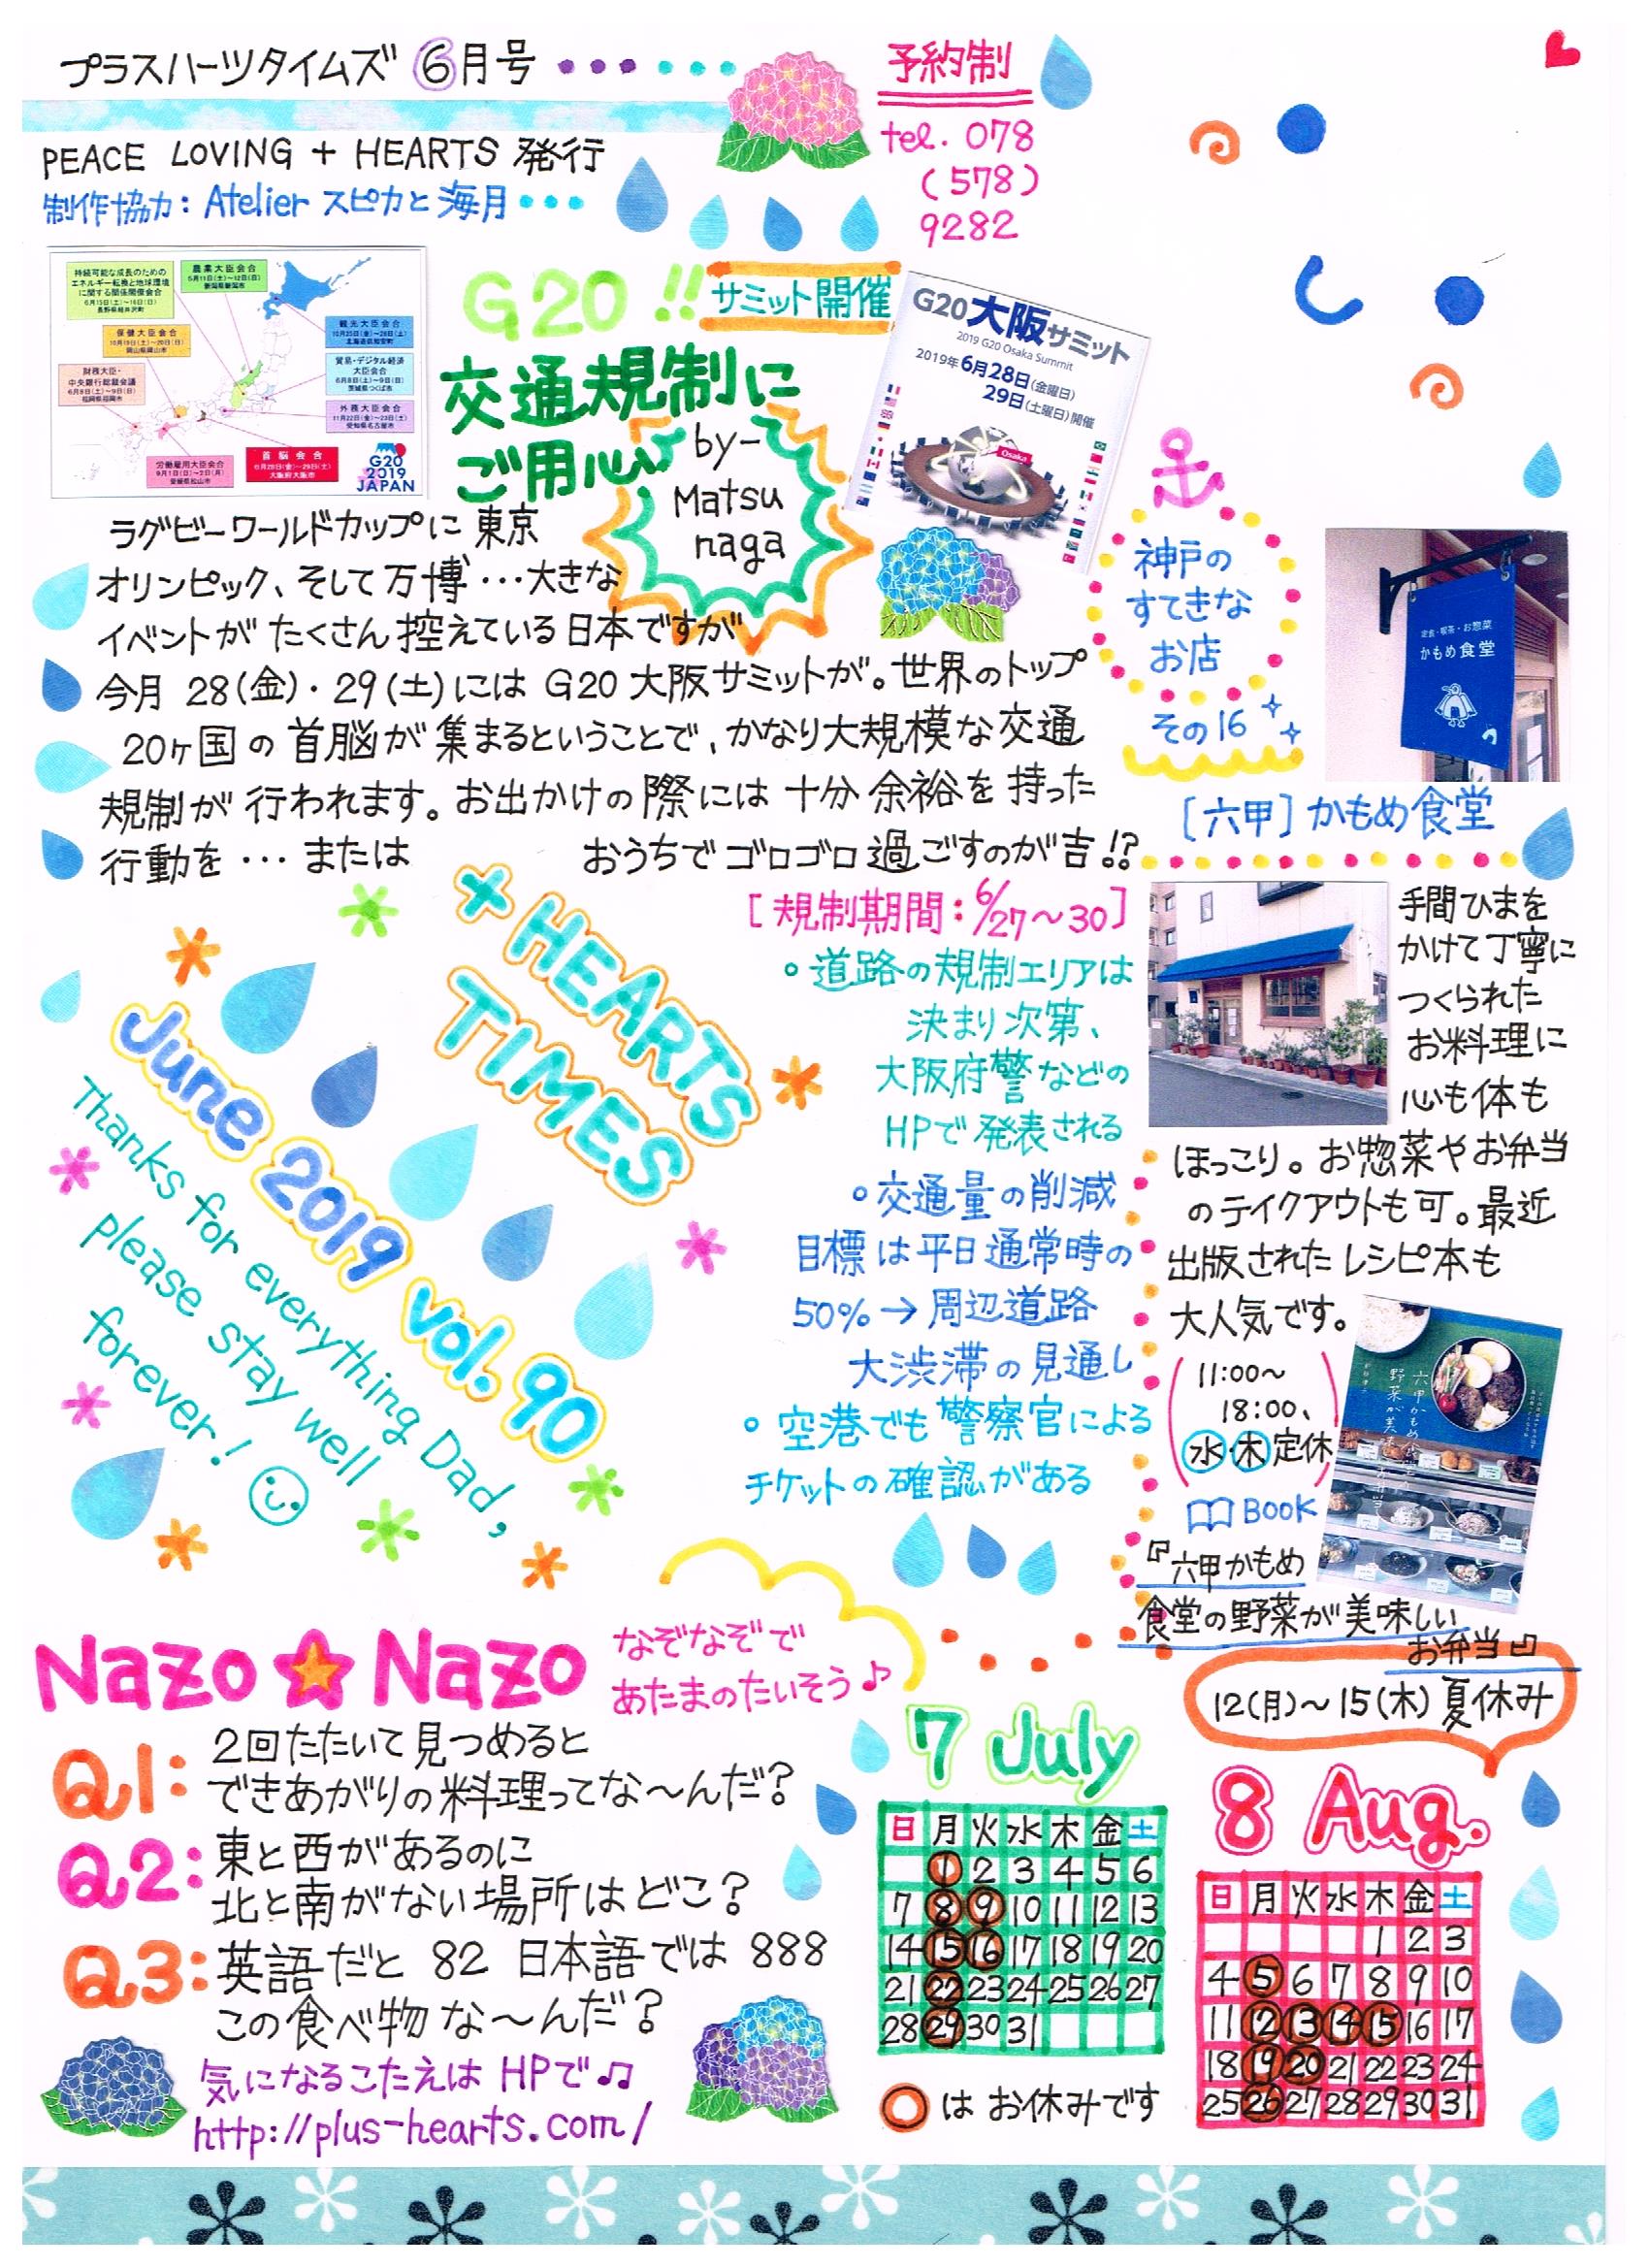 プラスハーツタイムズ 6月号
予約制
tel. 078
(578)
9282
PEACE LOVING + HEARTS 発行
制作協力: Atelier スピカと海月
持続可能な成長のための
エネルギー転換と地球環境
に関する関係閣僚会合
6月15日(土)~16日(日)
長野県軽井沢町
農業大臣会合
5月11日(土)~12日(日)
新潟県新潟市
保健大臣会合
10月19日(土)~20日(日)
岡山県岡山市
財務大臣・
中央銀行総裁会議
6月8日(土)~9日(日)
福岡県福岡市
観光大臣会合
10月25日(金)~26日(土)
北海道倶知安町
貿易・デジタル経済
大臣会合
6月8日(土)~9日(日)
茨城県つくば市
外務大臣会合
11月22日(金)~23日(土)
愛知県名古屋市
労働雇用大臣会合
9月1日(日)~2日(月)
愛媛県松山市
首脳会合
6月28日(金)~29日(土)
大阪府大阪市
G20
2019
JAPAN
G20!! サミット開催
交通規制に
ご用心
by-
Matsu
naga
G20大阪サミット
2019 G20 Osaka Summit
2019年6月28日(金曜日)
29日(土曜日)開催
Osaka
ラグビーワールドカップに 東京
オリンピック、そして万博…大きな
イベントが たくさん控えている日本ですが
今月 28(金)・29(土)には G20 大阪サミットが。世界のトップ
20ヶ国の首脳が集まるということで、かなり大規模な交通
規制が行われます。お出かけの際には 十分 余裕を持った
行動を … または
おうちで ゴロゴロ 過ごすのが吉!?
[規制期間:6/27~30]
○道路の規制エリアは
決まり次第、
大阪府警などの
HPで発表される
○交通量の削減
目標は平日通常時の
50% → 周辺道路
大渋滞の見通し
○空港でも警察官による
チケットの確認がある
+ HEARTS
TIMES
June 2019 vol. 90
Thanks for everything Dad,
please stay well
forever!
神戸の
すてきな
お店
その16
定食・喫茶・お惣菜
かもめ食堂
[六甲]かもめ食堂
手間ひまを
かけて丁寧に
つくられた
お料理に
心も体も
ほっこり。お惣菜やお弁当
のテイクアウトも可。最近
出版されたレシピ本も
大人気です。
(11:00~
18:00、
水木定休)
BOOK
『六甲かもめ
食堂の野菜が美味しい
お弁当』
Nazo★Nazo
なぞなぞで
あたまのたいそう♪
Q1: 2回たたいて見つめると
できあがりの料理ってな~んだ?
Q2: 東と西があるのに
北と南がない場所はどこ?
Q3: 英語だと 82 日本語では 888
この食べ物な~んだ?
気になるこたえは HPで♫
http://plus-hearts.com/
7 July
日 月 火 水 木 金 土
1 2 3 4 5 6
7 8 9 10 11 12 13
14 15 16 17 18 19 20
21 22 23 24 25 26 27
28 29 30 31
○は お休みです
12(月)~15(木) 夏休み
8 Aug.
日 月 火 水 木 金 土
1 2 3
4 5 6 7 8 9 10
11 12 13 14 15 16 17
18 19 20 21 22 23 24
25 26 27 28 29 30 31